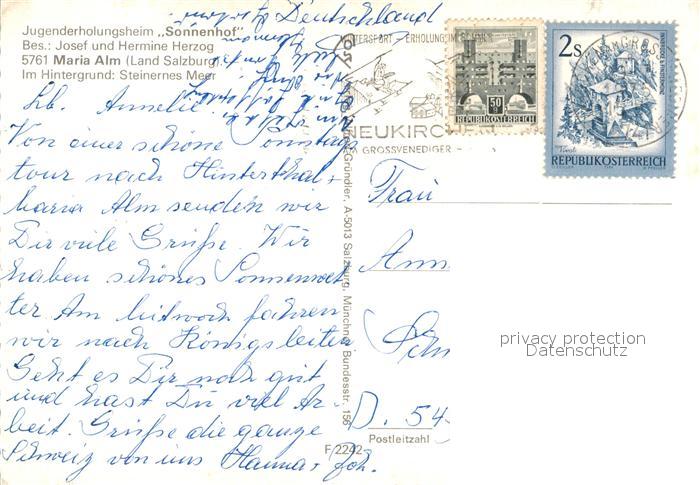 Jugenderholungsheim „Sonnenhof"
Bes.: Josef und Hermine Herzog
5761 Maria Alm (Land Salzburg)
Im Hintergrund: Steinernes Meer
Deutschland
Lb. Annelie
Von einer schöne Sonntags
tour nach Hinterthal,
Maria Alm senden wir
Dir viele Grüße. Wir
haben schönes Sonnenwet
ter. Am Mitwoch fahren
wir nach Königsleiten
Geht es Dir noch gut
und hast Du viel Ar-
beit. Grüße die ganze
Schweiz von uns Hanna + Joh.
WINTERSPORT - ERHOLUNG IM SOMMER
NEUKIRCHEN
AM GROSSVENEDIGER
50 g
REPUBLIK ÖSTERREICH
2s
REPUBLIK ÖSTERREICH
Gründler, A-5013 Salzburg, Münchner Bundesstr. 156
Frau
Ann
Sch
D. 54
Postleitzahl
F 2242
privacy protection
Datenschutz